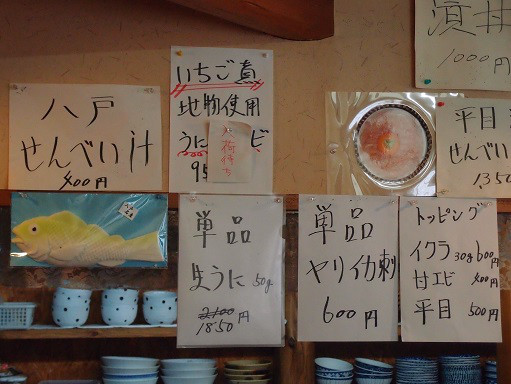 八戸
せんべい汁
400円
いちご煮
地物使用
うに
ビ
入荷待ち
95
丼
1000円
平目
せんべい
1350
単品
生うに 50g
2100
1850円
単品
ヤリイカ刺
600円
トッピング
イクラ 30g 600円
甘エビ 400円
平目 500円